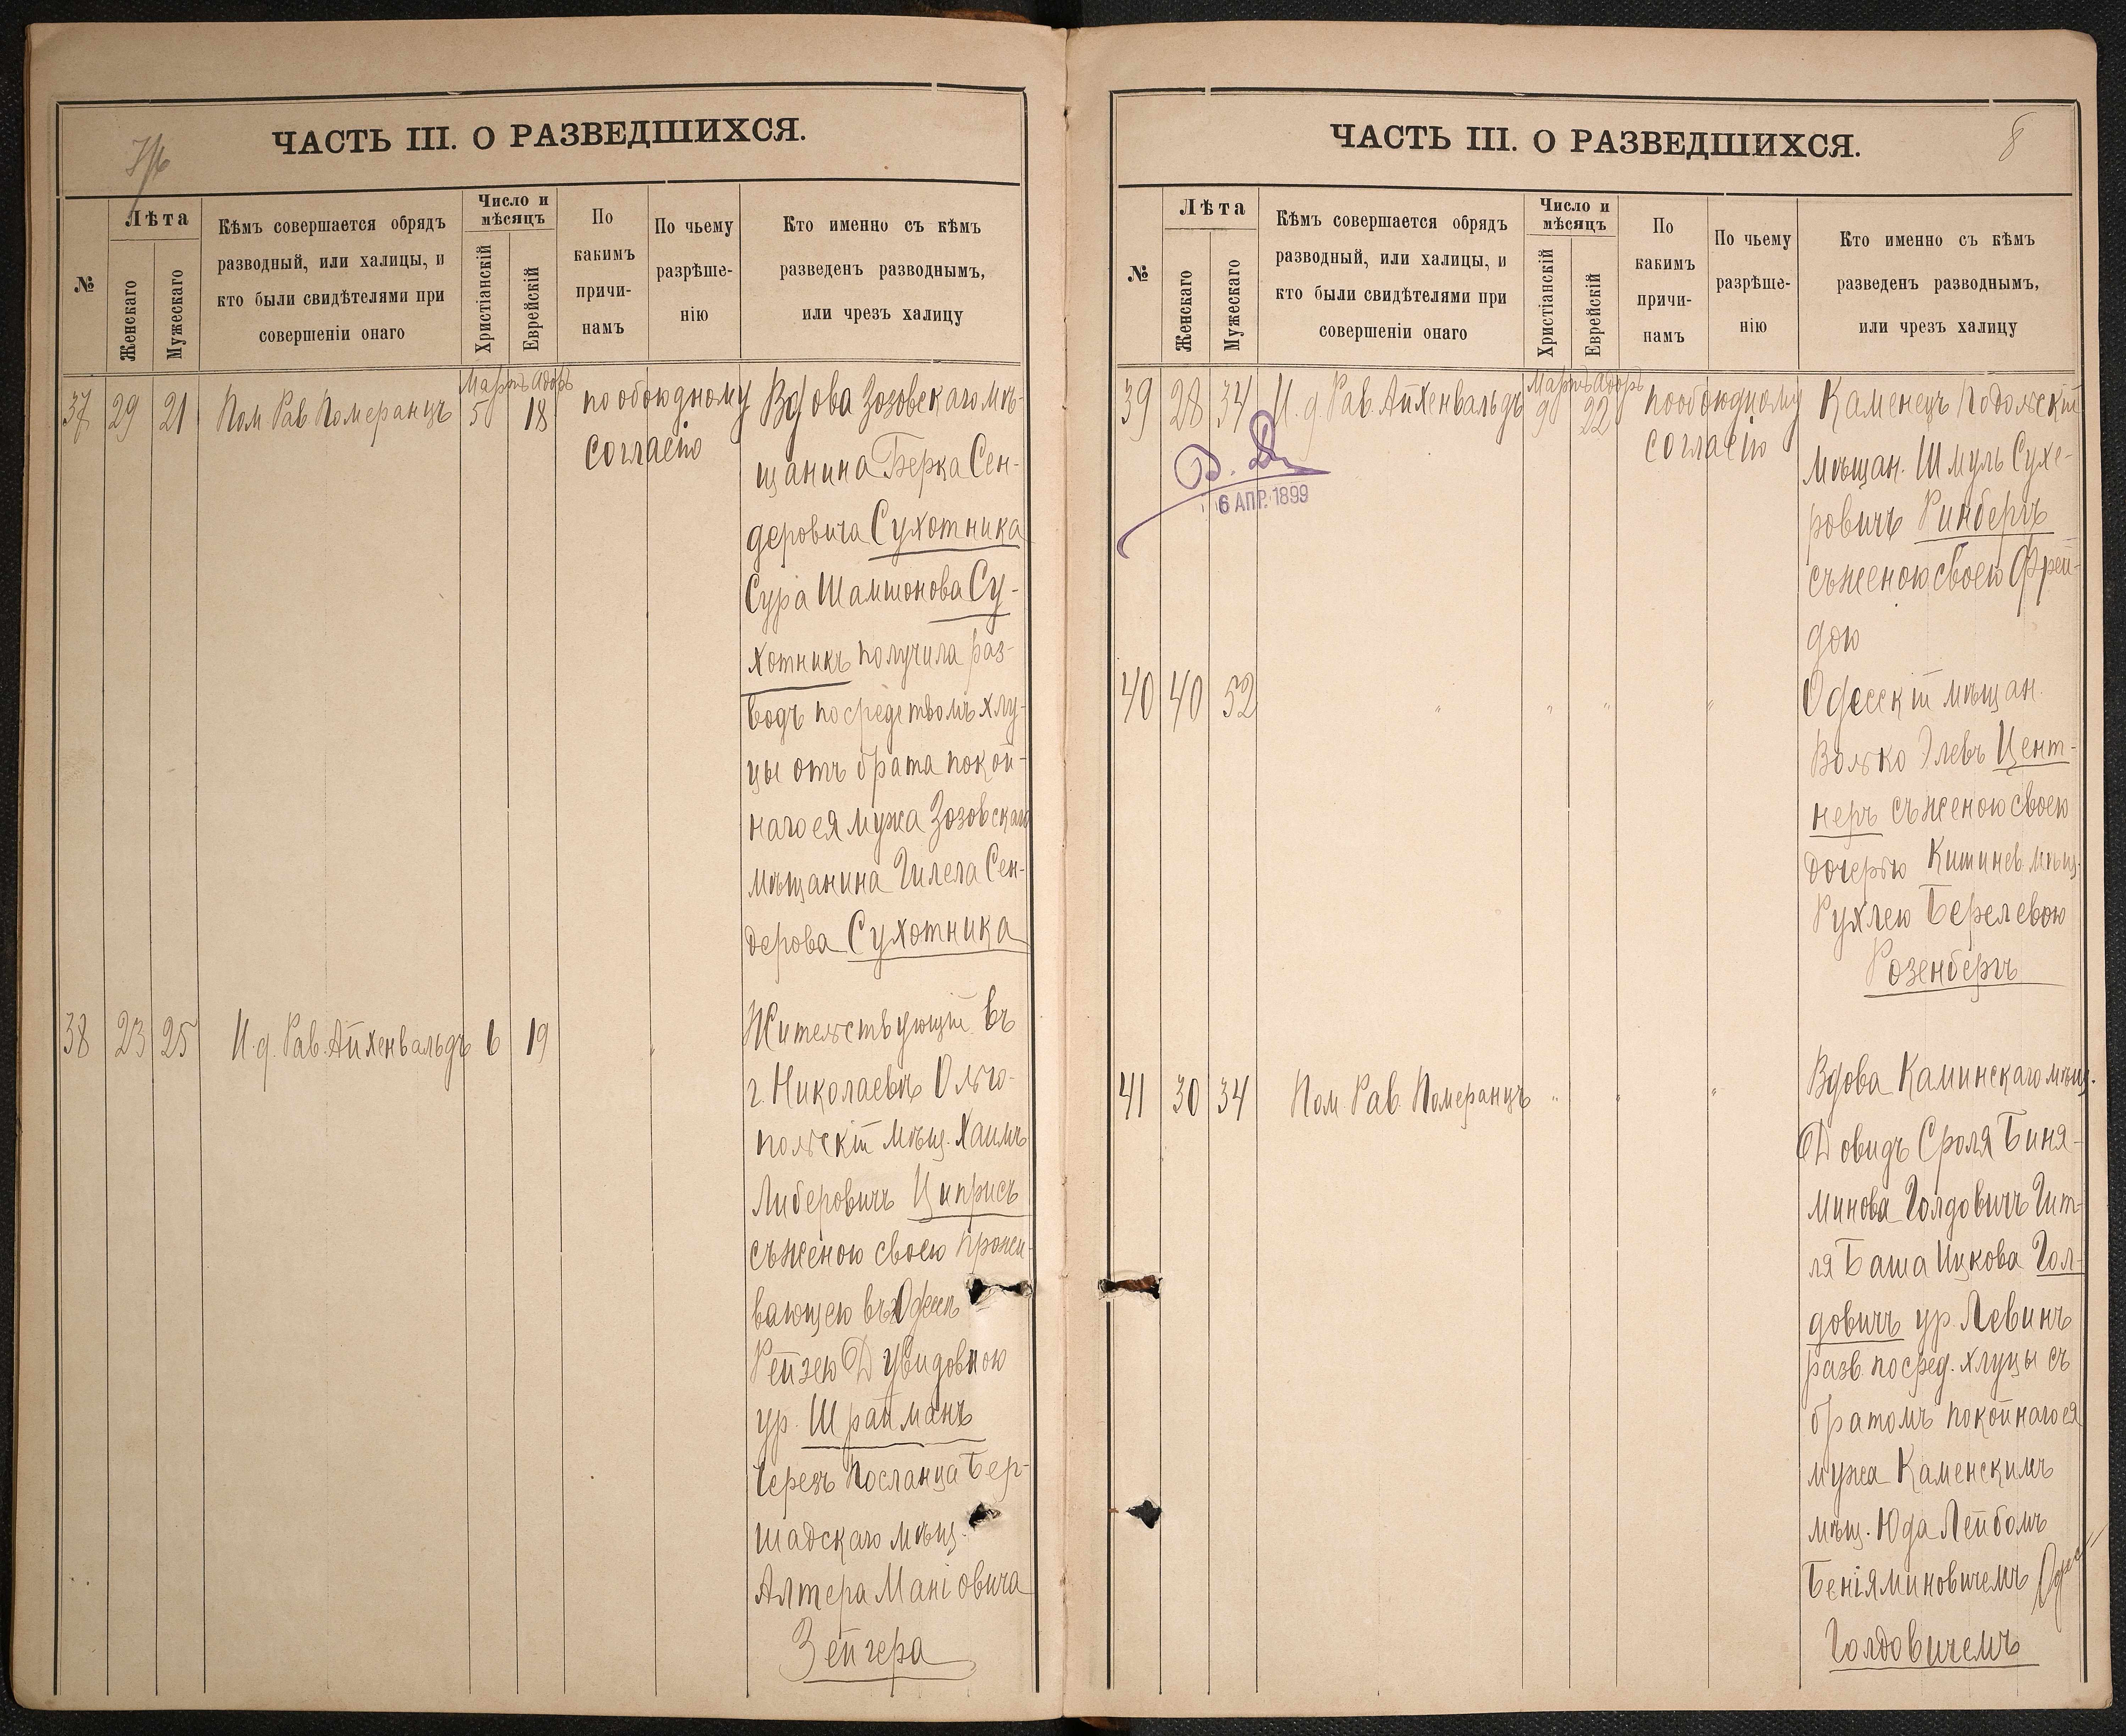 ЧАСТЬ III. О РАЗВЕДШИХСЯ.
№
Лѣта
Женскаго
Мужескаго
Кѣмъ совершается обрядъ
разводный, или халицы, и
кто были свидѣтелями при
совершеніи онаго
Число и
мѣсяцъ
Христіанскій
Еврейскій
По
какимъ
причи-
намъ
По чьему
разрѣше-
нію
Кто именно съ кѣмъ
разведенъ разводнымъ,
или чрезъ халицу
Мартъ Адоръ
37 29 21 Пом. Рав. Померанцъ 5 18 по обоюдному
согласію
Вдова Зозовскаго мѣ-
щанина Берка Сен-
деровича Сухотника
Сура Шамшонова Су-
хотникъ получила раз-
водъ посредствомъ хлу-
цы отъ брата покой-
наго ея мужа Зозовскаго
мѣщанина Гилела Сен-
дерова Сухотника
38 23 25 И. д. Рав. Айхенвальдъ 6 19 "
Жительствующій въ
г. Николаевѣ Ольго-
польскій мѣщ. Хаимъ
Либеровичъ Циприсъ
съ женою своею прожи-
вающею въ Одессѣ
Рейзею Дувидовною
ур. Шрайманъ
Черезъ посланца Бер-
шадскаго мѣщ.
Алтера Маніовича
Зейгера
ЧАСТЬ III. О РАЗВЕДШИХСЯ.
8
№
Лѣта
Женскаго
Мужескаго
Кѣмъ совершается обрядъ
разводный, или халицы, и
кто были свидѣтелями при
совершеніи онаго
Число и
мѣсяцъ
Христіанскій
Еврейскій
По
какимъ
причи-
намъ
По чьему
разрѣше-
нію
Кто именно съ кѣмъ
разведенъ разводнымъ,
или чрезъ халицу
Мартъ Адоръ
39 28 34 И. д. Рав. Айхенвальдъ 9 22 по обоюдному
согласію
6 АПР. 1899
Каменецъ Подольскій
мѣщан. Шмуль Сухе-
ровичъ Ринбергъ
съ женою своею Фрей-
дою
40 40 52 " " " "
Одесскій мѣщан.
Волько Элевъ Цент-
неръ съ женою своею
дочерью Кишинев. мѣщ.
Рухлею Берелевою
Розенбергъ
41 30 34 Пом. Рав. Померанцъ " " "
Вдова Каминскаго мѣщ.
Довидъ Сроля Биня-
минова Голдовичъ Гит-
ля Баша Ицкова Гол-
довичъ ур. Левинъ
разв. посред. хлуцы съ
братомъ покойнаго ея
мужа Каменскимъ
мѣщ. Юда Лейбомъ
Беніяминовичемъ
Голдовичемъ